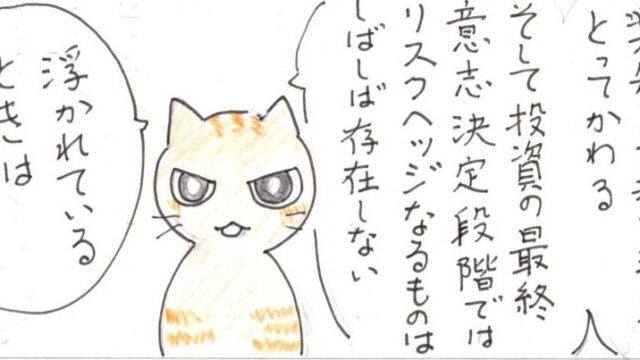 とってかわる
そして投資の最終
意志決定段階では
リスクヘッジなるものは
しばしば存在しない
浮かれている
ときは